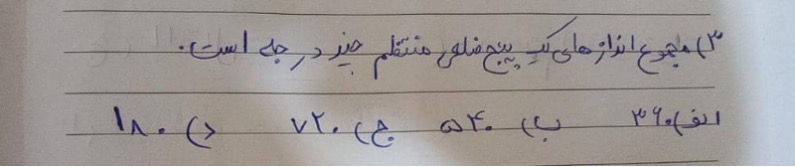 ۳) مجموع اندازهای یک پنج ضلعی منتظم چند درجه است.
الف) ۳۶۰ ب) ۵۴۰ ج) ۷۲۰ د) ۱۸۰